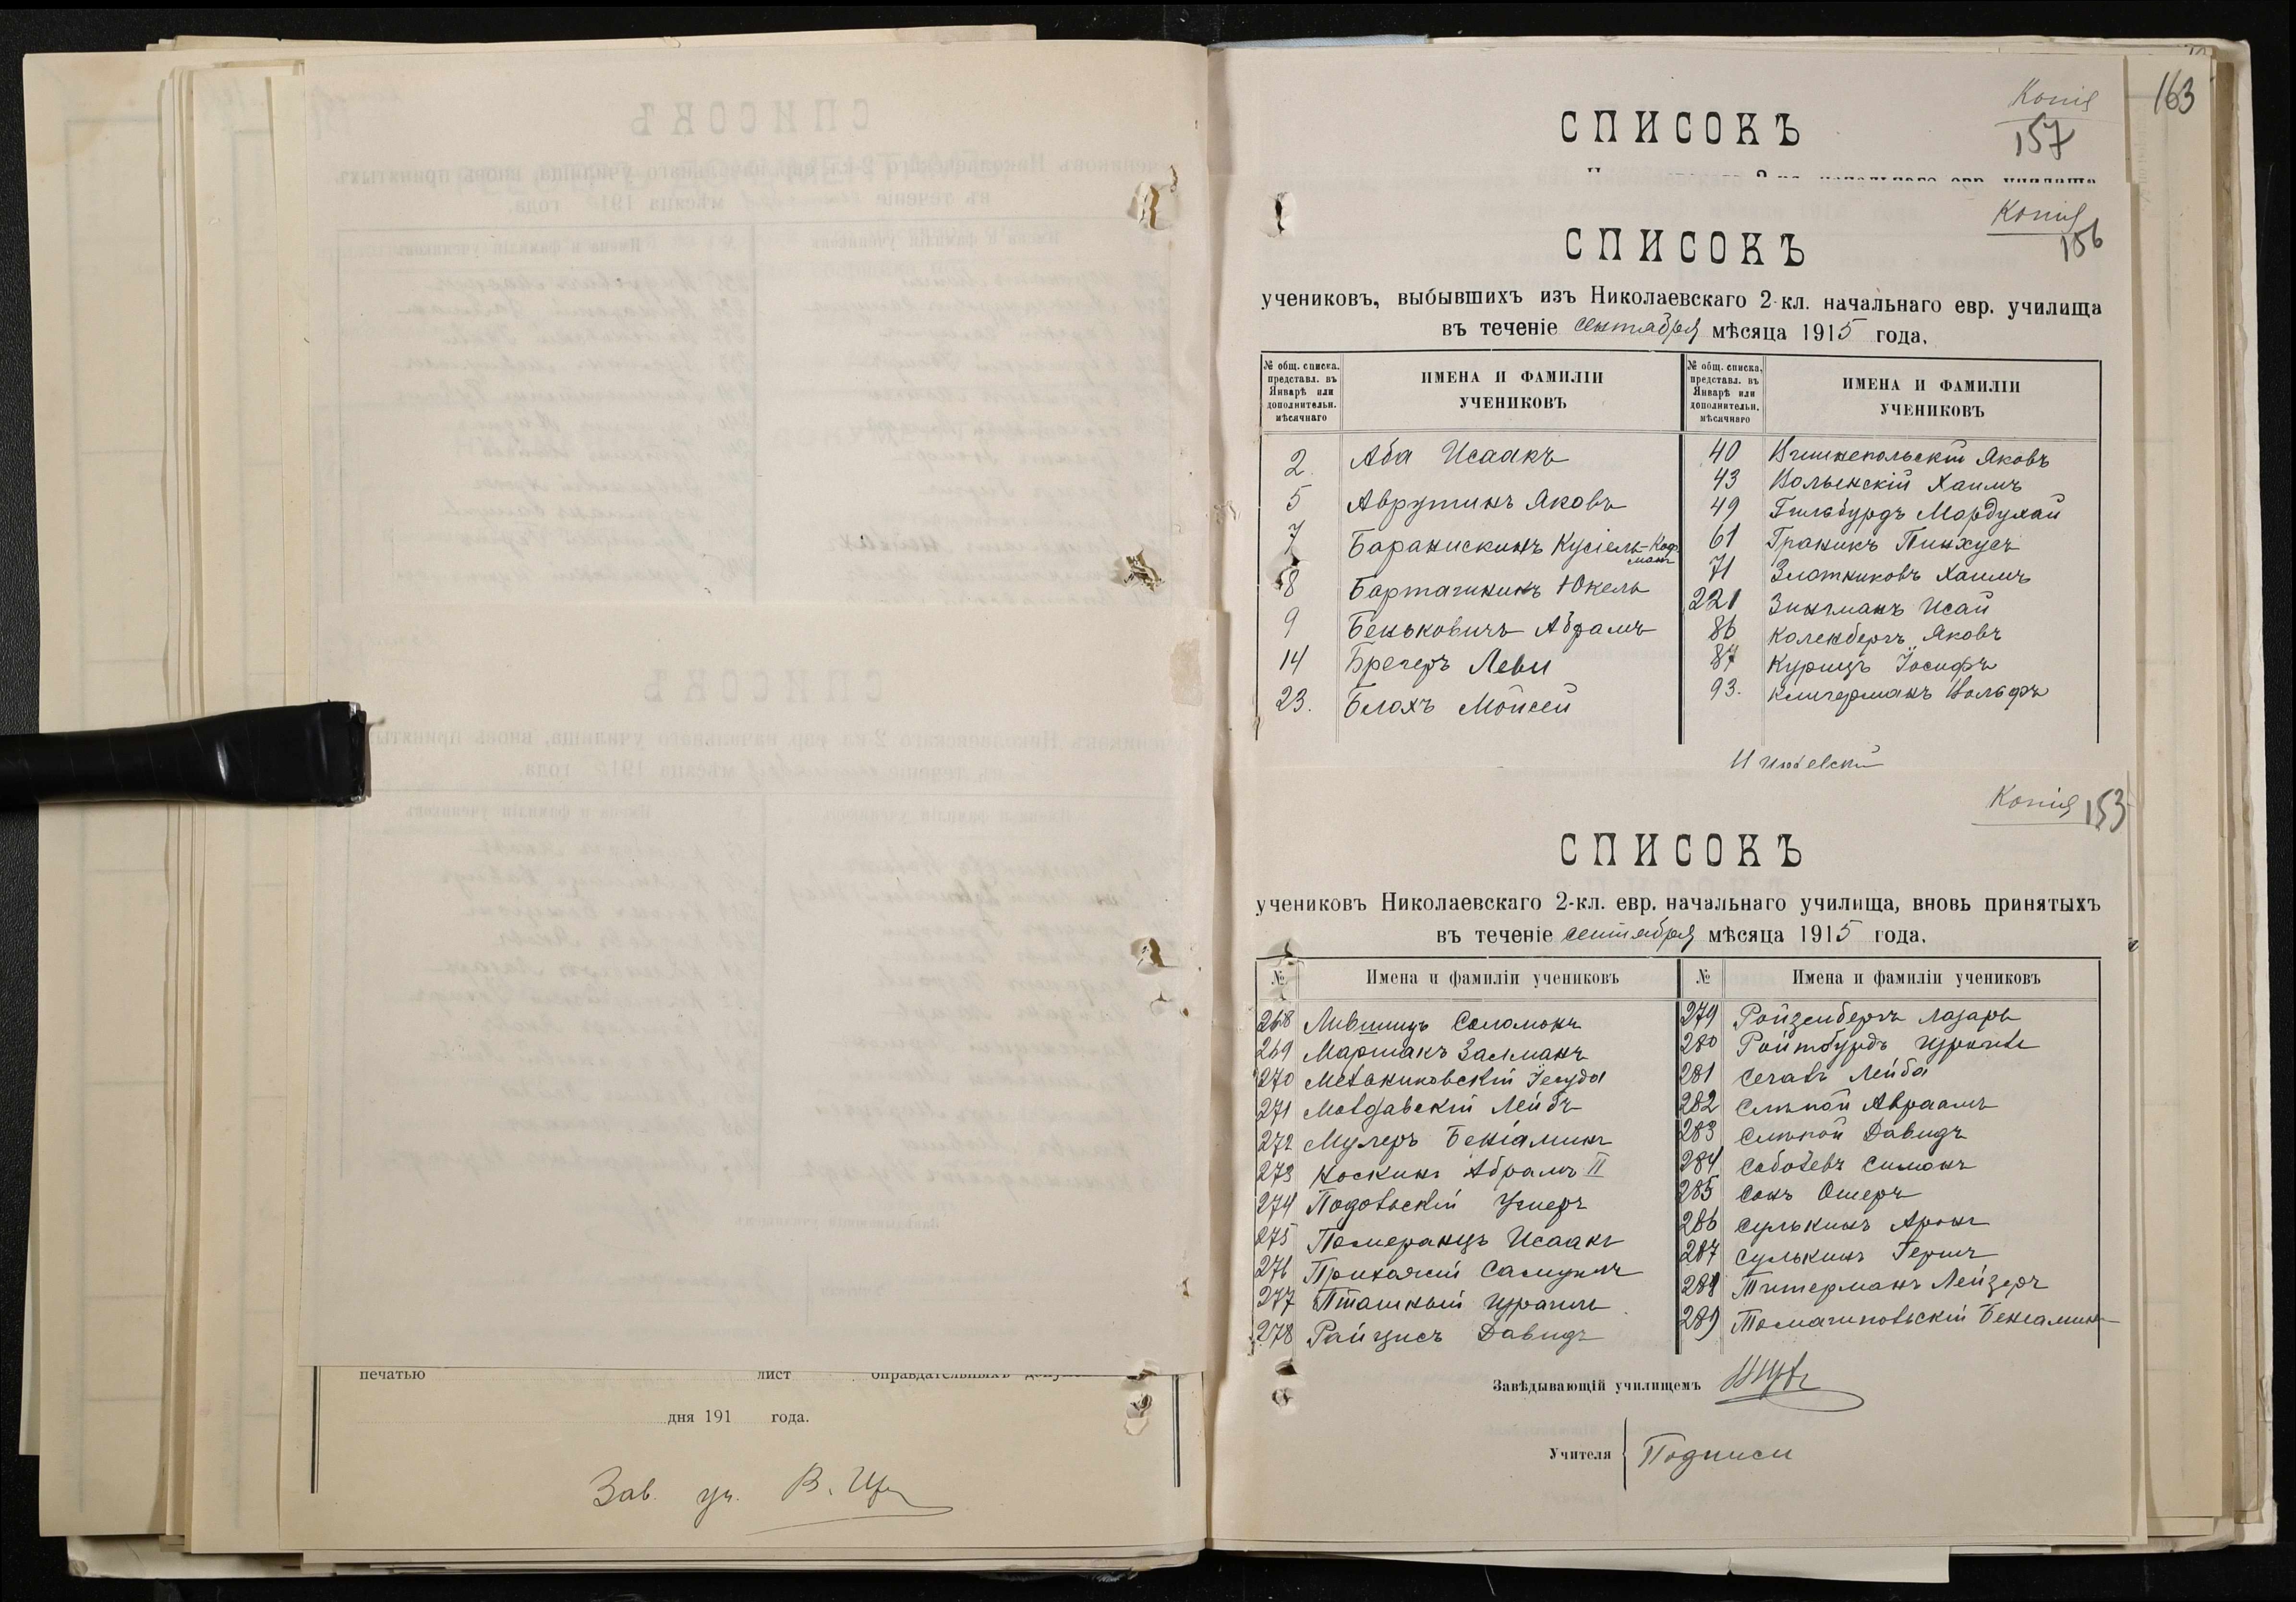 печатью лист
дня 191 года.
Зав. уч. В.
163
Копія
157
СПИСОКЪ
Копія
156
СПИСОКЪ
учениковъ, выбывшихъ изъ Николаевскаго 2-кл. начальнаго евр. училища
въ теченіе сентября мѣсяца 1915 года.
№ общ. списка, представл. въ Январѣ или дополнительн. мѣсячнаго
ИМЕНА И ФАМИЛІИ УЧЕНИКОВЪ
№ общ. списка, представл. въ Январѣ или дополнительн. мѣсячнаго
ИМЕНА И ФАМИЛІИ УЧЕНИКОВЪ
2 Аба Исаакъ
5 Аврутинъ Яковъ
7 Баранискинъ Кусіель-Кофманъ
8 Борташникъ Юкель
9 Беньковичъ Абрамъ
14 Бречеръ Леви
23. Блохъ Мойсей
40 Вишнепольскій Яковъ
43 Волынскій Хаимъ
49 Гильбурдъ Мордухай
61 Граникъ Пинхусъ
71 Злотниковъ Хаимъ
221 Зингманъ Исай
86 Коленбергъ Яковъ
87 Курицъ Іосифъ
93. Клигерманъ Вольфъ
Копія 153
СПИСОКЪ
учениковъ Николаевскаго 2-кл. евр. начальнаго училища, вновь принятыхъ
въ теченіе сентября мѣсяца 1915 года.
№ Имена и фамиліи учениковъ
№ Имена и фамиліи учениковъ
268 Лившицъ Соломонъ
269 Маршакъ Залманъ
270 Меланиковскій Іегуда
271 Молдавскій Лейбъ
272 Мулеръ Беніаминъ
273 Носкинъ Абрамъ II
274 Подольскій Ушеръ
275 Померанцъ Исаакъ
276 Самуилъ
277 Пташный Израиль
278 Райцисъ Давидъ
279 Ройзенбергъ Лазарь
280 Ройтбурдъ Израиль
281 Сегаль Лейба
282 Слѣпой Авраамъ
283 Слѣпой Давидъ
284 Соболевъ Симонъ
285 Сонъ Ошеръ
286 Сулькинъ Аронъ
287 Сулькинъ Гершъ
288 Титерманъ Лейзеръ
289 Томашпольскій Беніаминъ
Завѣдывающій училищемъ
Учителя Подписи